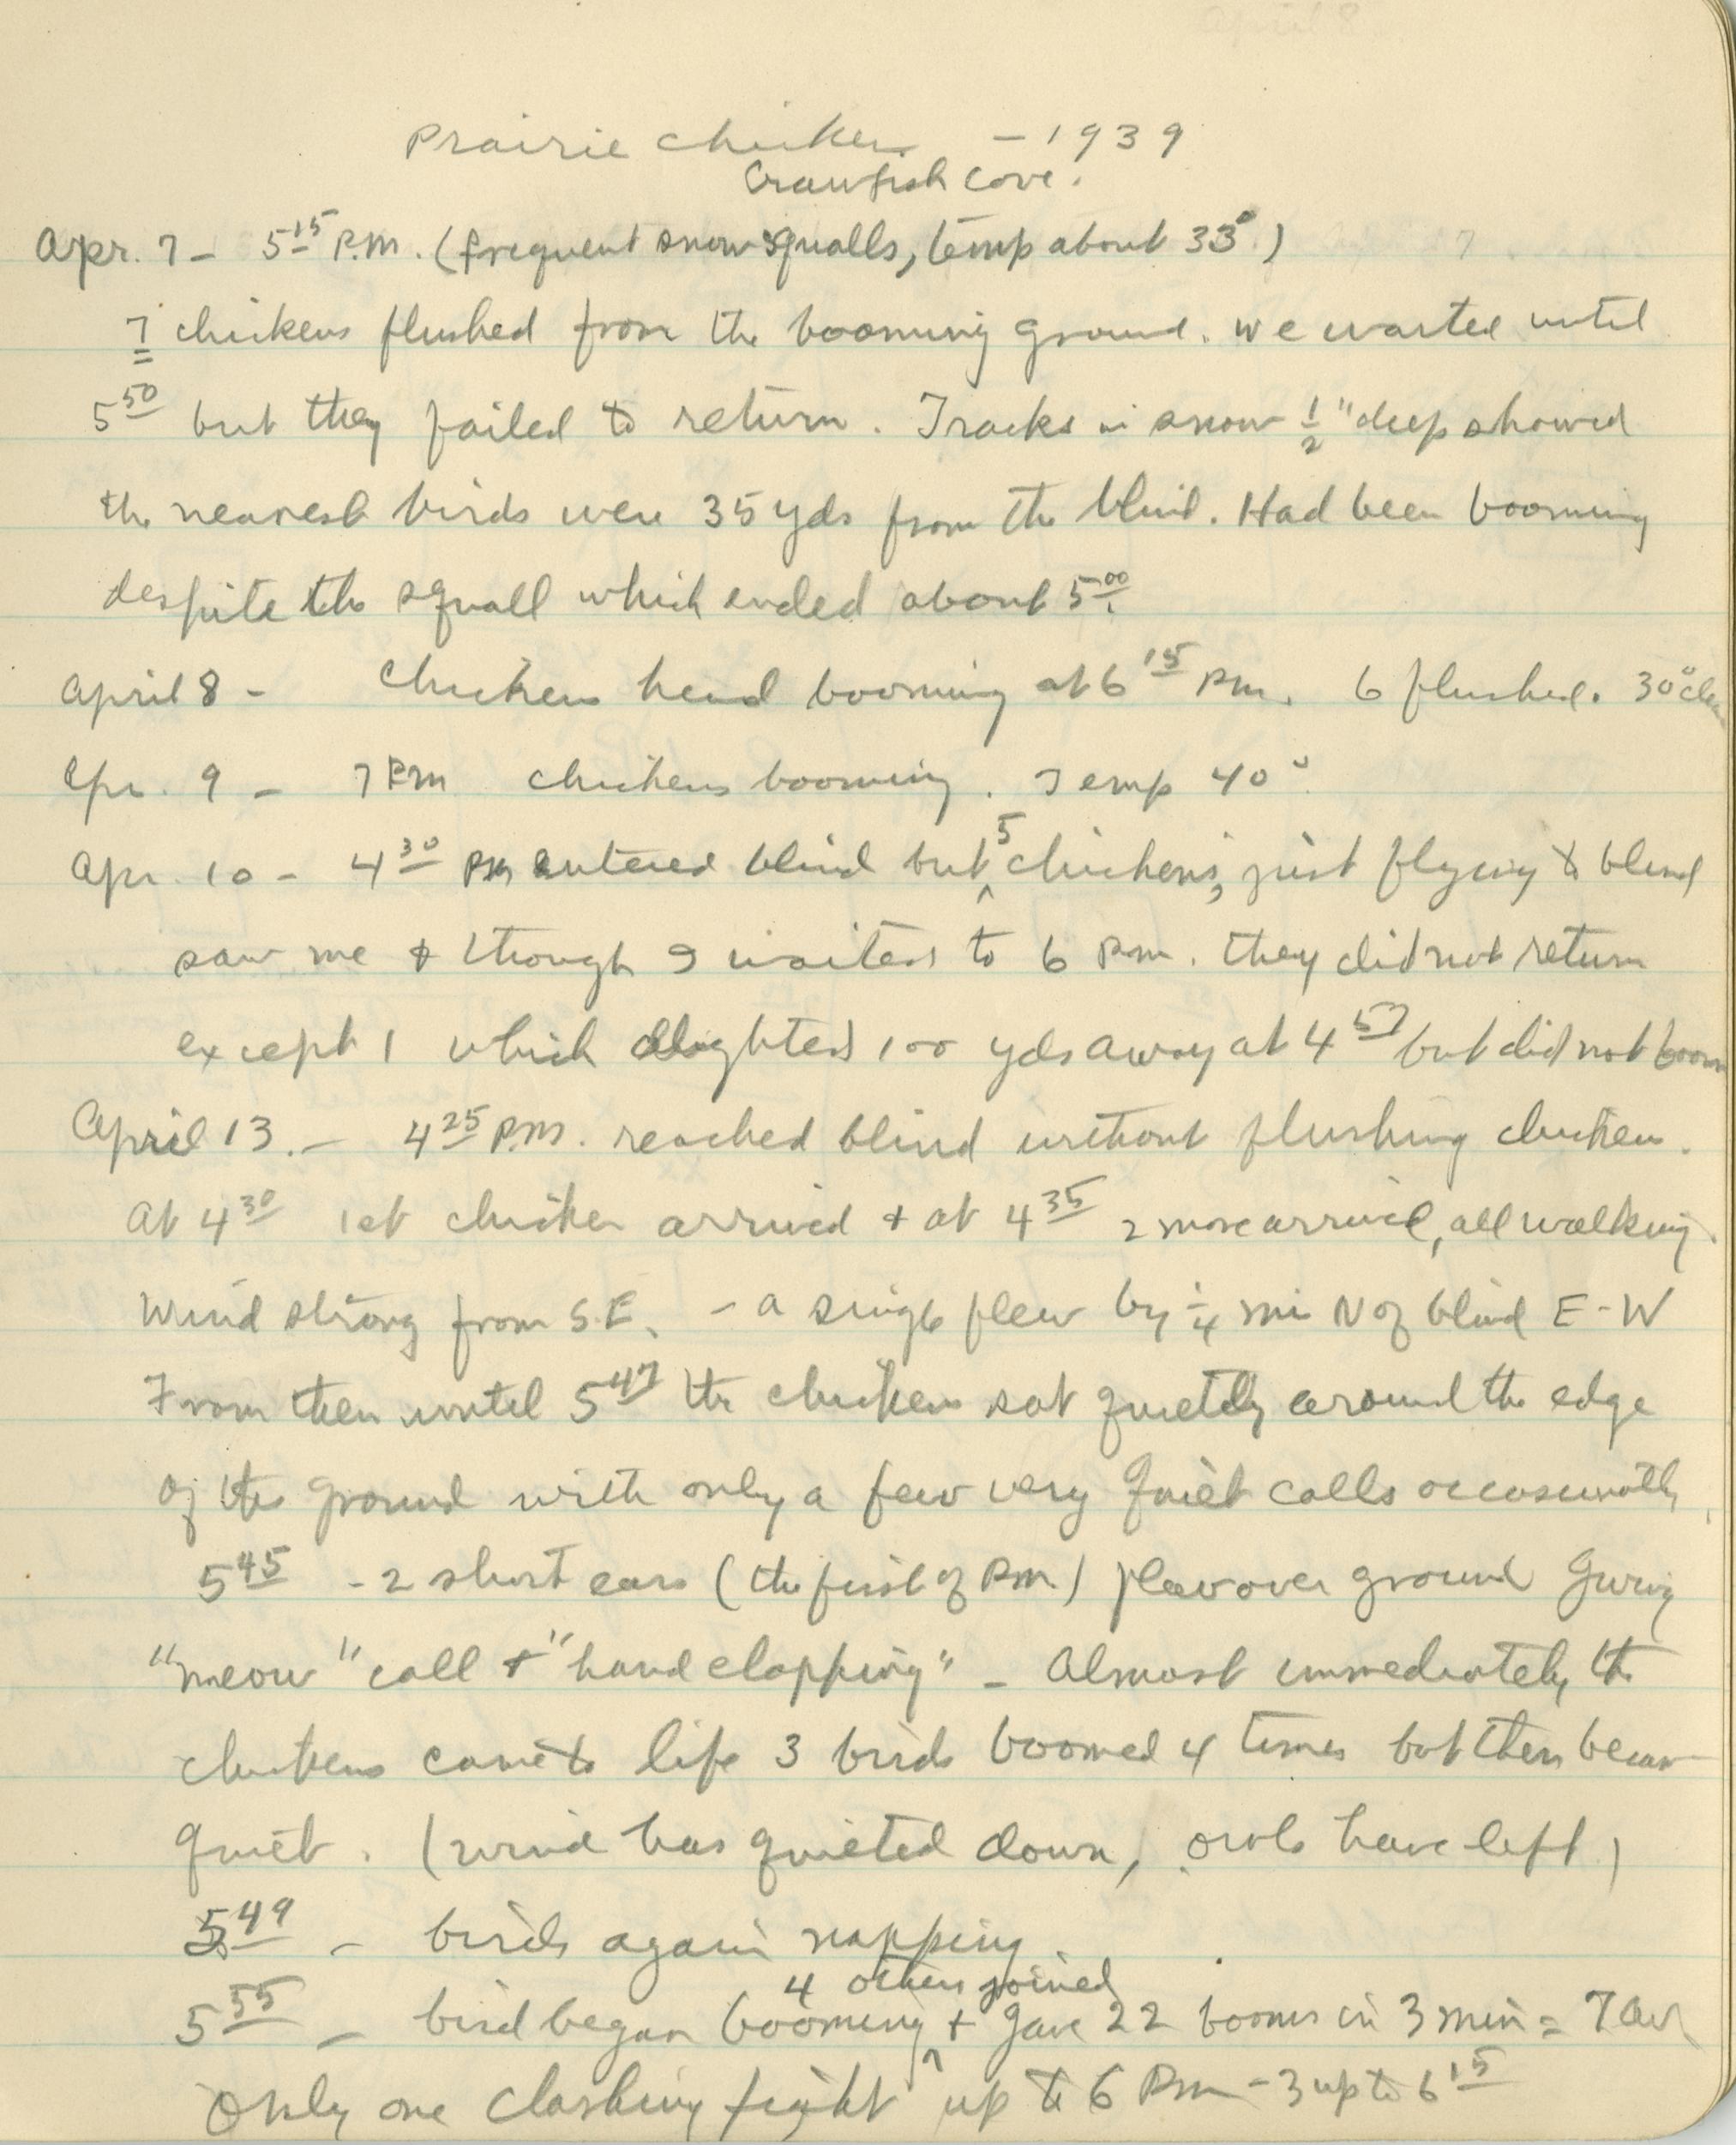 Prairie chicken - 1939
Crawfish Cove.
Apr. 7 - 5 15 P.M. (frequent snow squalls, temp about 33°)
7 chickens flushed from the booming ground. We waited until
5 50 but they failed to return. Tracks in snow 1/2" deep showed
the nearest birds were 35 yds from the blind. Had been booming
despite the squall which ended about 5 00.
April 8 - Chickens heard booming at 6 15 P.M. 6 flushed. 30° clear
Apr. 9 - 7 P.M. chickens booming. Temp 40°.
Apr. 10 - 4 30 P.M. entered blind but 5 chickens, just flying to blind
saw me & though I waited to 6 P.m. they did not return
except 1 which alighted 100 yds away at 4 57 but did not boom
April 13. - 4 25 P.M. reached blind without flushing chickens.
At 4 30 1st chicken arrived + at 4 35 2 more arrived, all walking.
Wind strong from S.E. - a single flew by 1/4 mi N of blind E-W
From then until 5 47 the chickens sat quietly around the edge
of the ground with only a few very quiet calls occasionally.
5 45 - 2 short ears (the first of P.m.) flew over ground giving
"meow" call + "hand clapping" - Almost immediately the
chickens came to life 3 birds boomed 4 times but then became
quiet. (wind has quieted down, owls have left)
5 49 - birds again napping
4 others joined
5 55 - bird began booming + gave 22 booms in 3 min = 7 av
Only one clashing fight up to 6 P.m - 3 up to 6 15